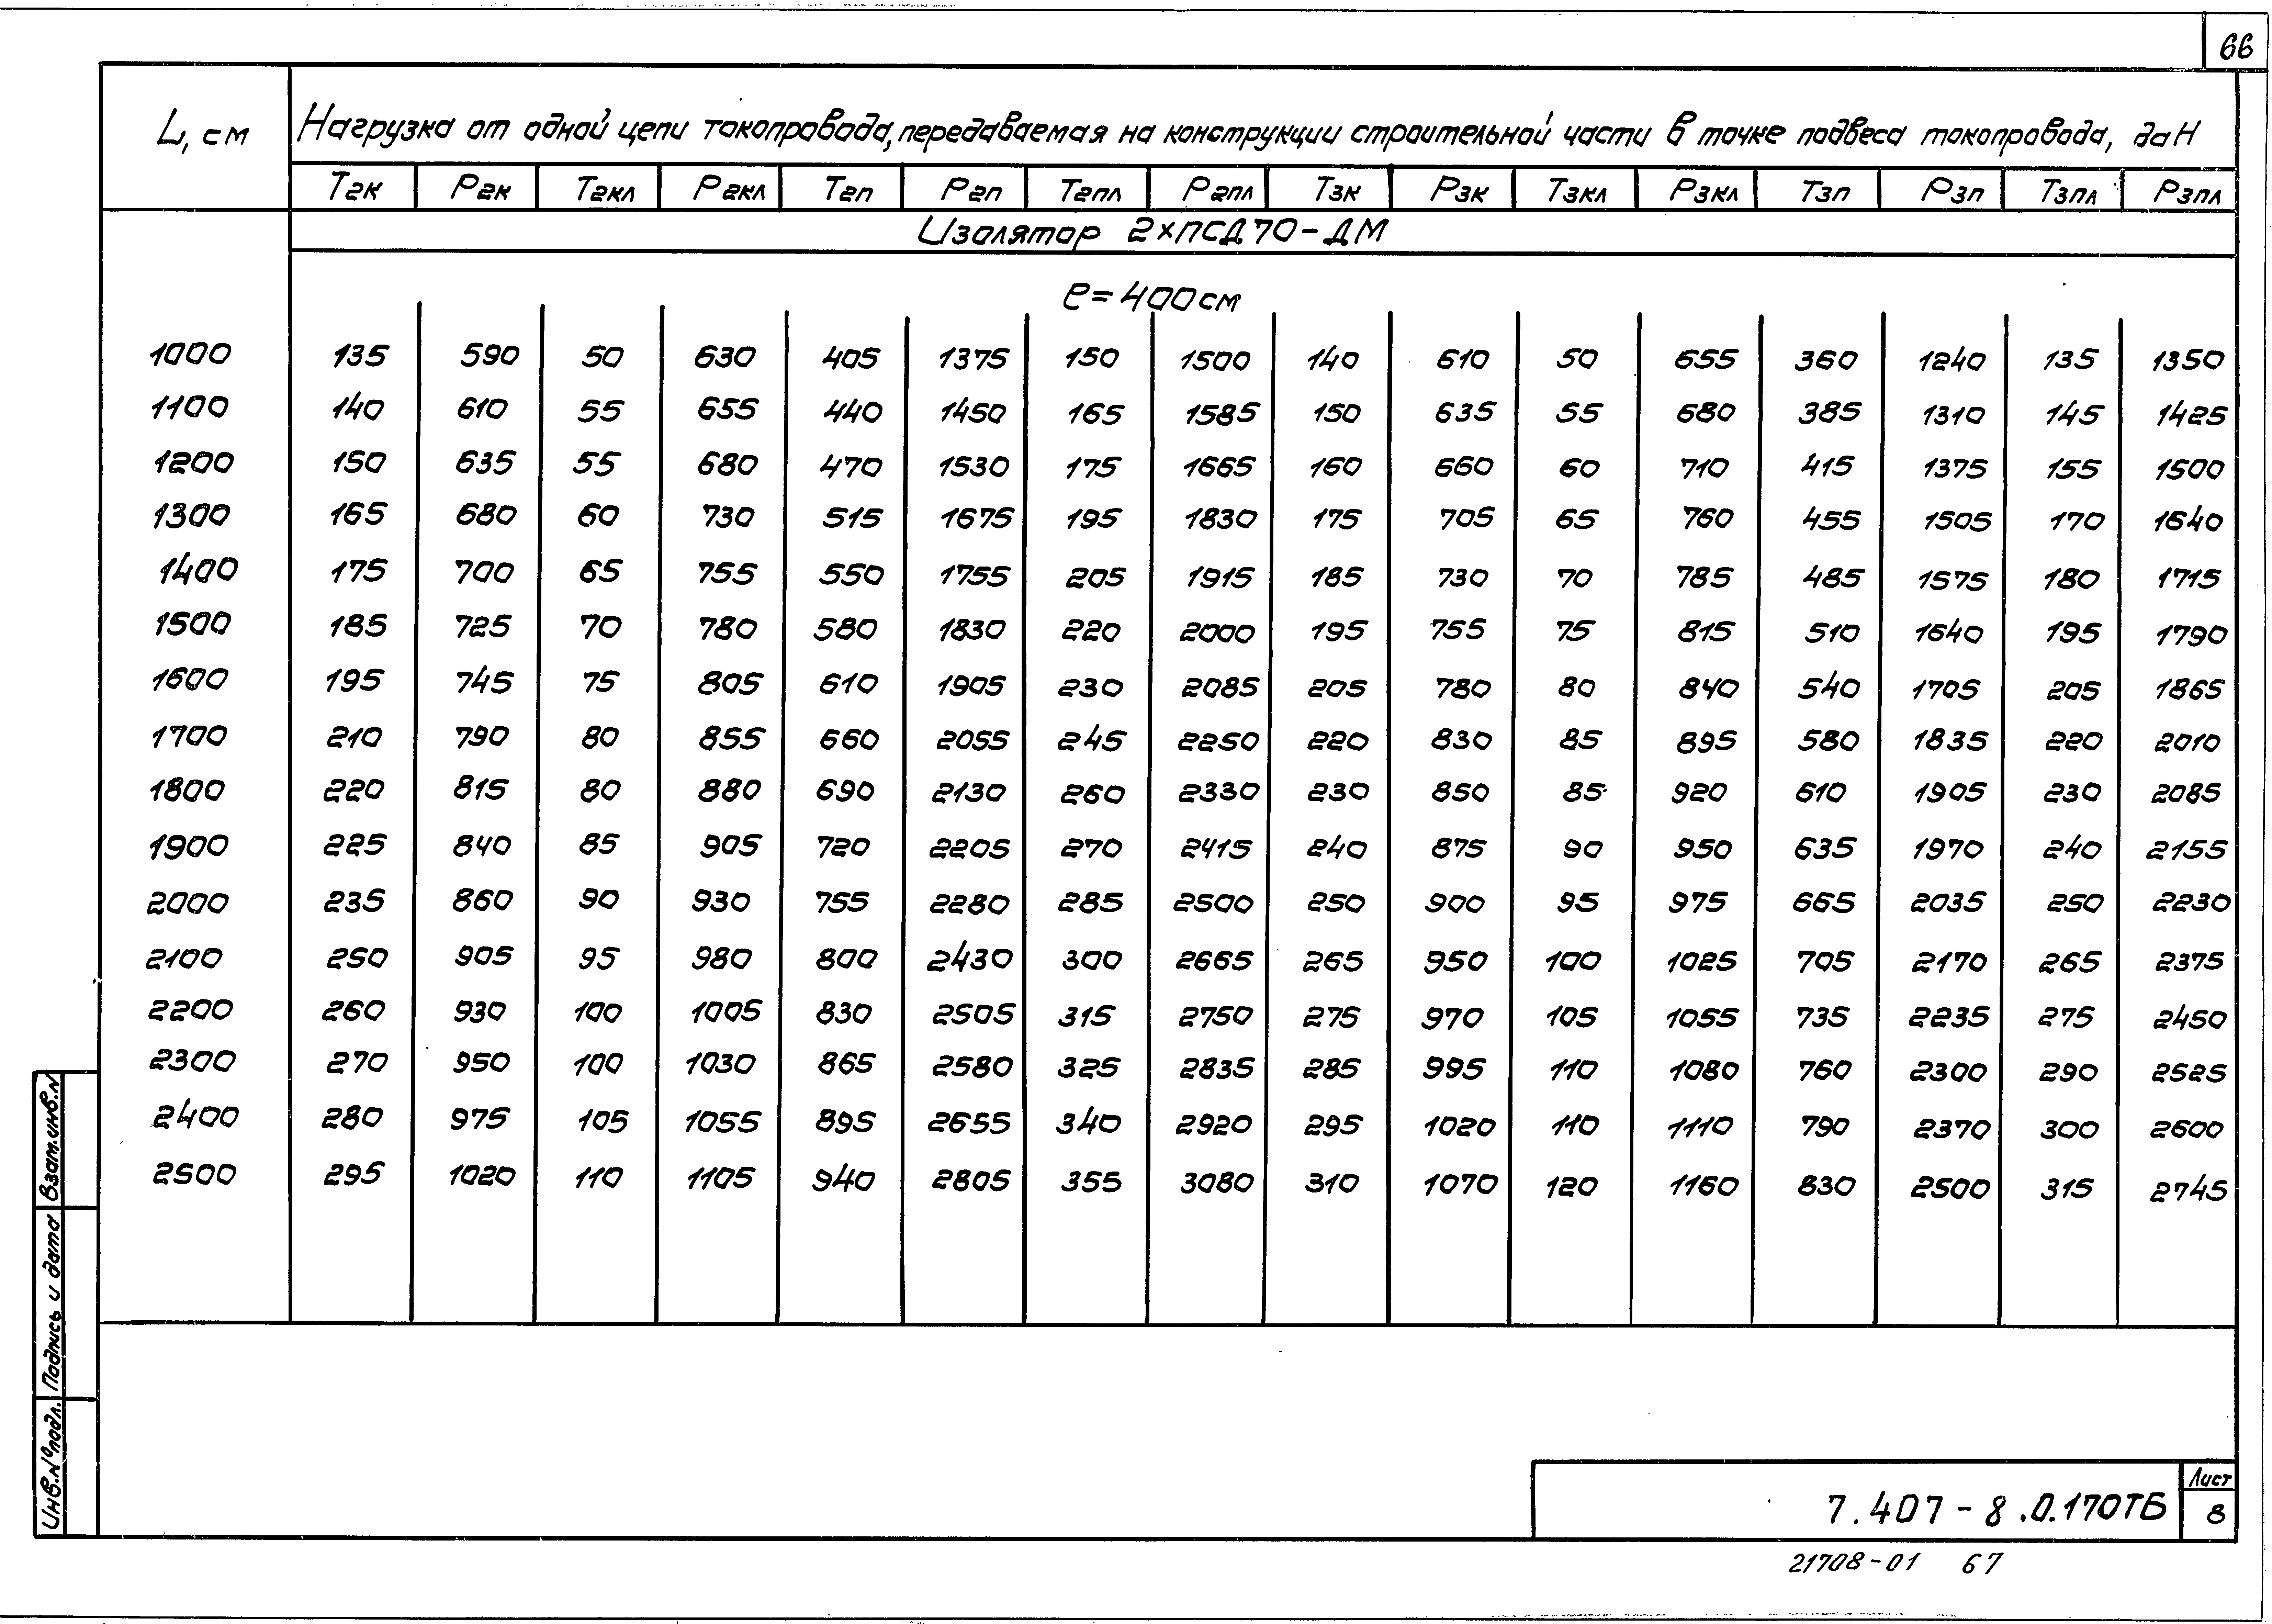 66
L, см Нагрузка от одной цепи токопровода, передаваемая на конструкции строительной части в точке подвеса токопровода, даН
Тгк Ргк Тгкл Ргкл Тгп Ргп Тгпл Ргпл Тзк Рзк Тзкл Рзкл Тзп Рзп Тзпл Рзпл
Изолятор 2×ПСД70-ДМ
ℓ=400см
1000 135 590 50 630 405 1375 150 1500 140 610 50 655 360 1240 135 1350
1100 140 610 55 655 440 1450 165 1585 150 635 55 680 385 1310 145 1425
1200 150 635 55 680 470 1530 175 1665 160 660 60 710 415 1375 155 1500
1300 165 680 60 730 515 1675 195 1830 175 705 65 760 455 1505 170 1640
1400 175 700 65 755 550 1755 205 1915 185 730 70 785 485 1575 180 1715
1500 185 725 70 780 580 1830 220 2000 195 755 75 815 510 1640 195 1790
1600 195 745 75 805 610 1905 230 2085 205 780 80 840 540 1705 205 1865
1700 210 790 80 855 660 2055 245 2250 220 830 85 895 580 1835 220 2010
1800 220 815 80 880 690 2130 260 2330 230 850 85 920 610 1905 230 2085
1900 225 840 85 905 720 2205 270 2415 240 875 90 950 635 1970 240 2155
2000 235 860 90 930 755 2280 285 2500 250 900 95 975 665 2035 250 2230
2100 250 905 95 980 800 2430 300 2665 265 950 100 1025 705 2170 265 2375
2200 260 930 100 1005 830 2505 315 2750 275 970 105 1055 735 2235 275 2450
2300 270 950 100 1030 865 2580 325 2835 285 995 110 1080 760 2300 290 2525
2400 280 975 105 1055 895 2655 340 2920 295 1020 110 1110 790 2370 300 2600
2500 295 1020 110 1105 940 2805 355 3080 310 1070 120 1160 830 2500 315 2745
Взам.инв.N
Подпись и дата
Инв.N°подл.
7.407-8.0.170ТБ
Лист
8
21708-01 67